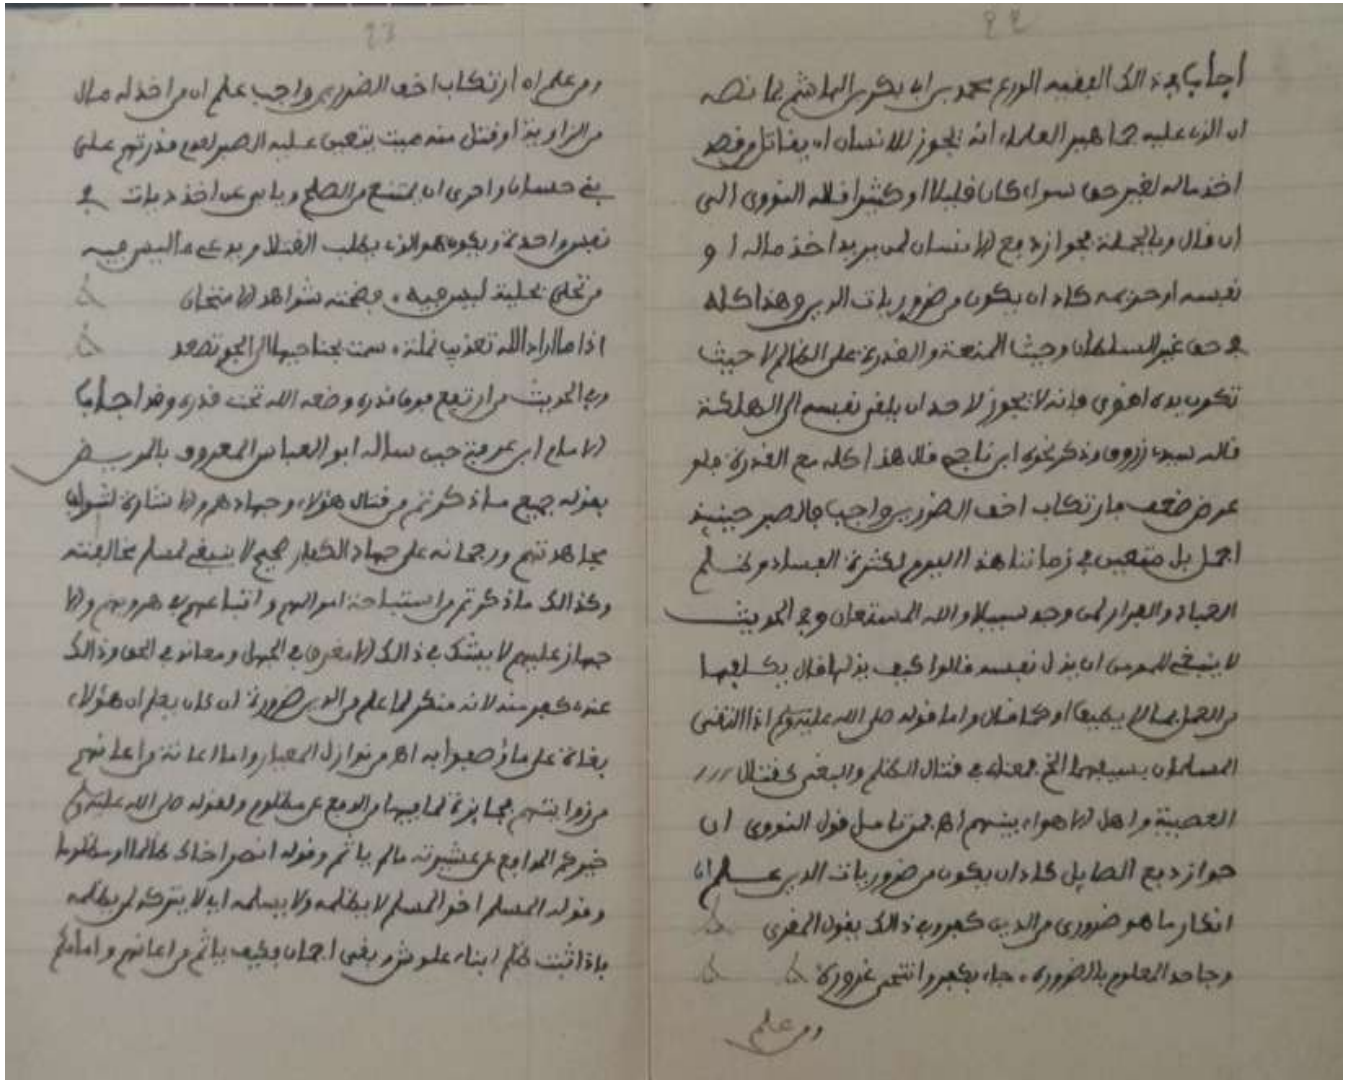 ٢٢
اجاب في ذالك الفقيه الورع محمد بن ابي بكر الهاشم بما نصه
ان الذى عليه جماهير العلماء انه يجوز للانسان ان يقاتل من قصد
اخذ ماله لغير حق سواء كان قليلا او كثيرا قاله النووى الى
ان قال وبالجملة فجواز دفع الانسان لمن يريد اخذ ماله او
نفسه او حريمه كاد ان يكون من ضروريات الدين وهذا كله
في حق غير السلطان وحيث المنعة والقدرة على الظالم لا حيث
تكون يده اقوى فانه لا يجوز لاحد ان يلقى نفسه الى الهلكة
قاله سيدى زروق وذكر نحوه ابن ناجي قال هذا كله مع القدرة فلو
عرض ضعف فارتكاب اخف الضررين واجب فالصبر حينئذ
اجمل بل متعين في زماننا هذا اليوم لكثرة الفساد وظلم
العباد والفرار لمن وجد سبيلا والله المستعان وفي الحديث
لا ينبغي للمومن ان يذل نفسه قالوا كيف يذلها قال يكلفها
من العمل ما لا يطيق او كما قال واما قوله صلى الله عليه وسلم اذا التقى
المسلمان بسيفيهما الخ فمعناه في قتال الظلم والبغي كقتال
العصبية واهل الاهواء بينهم اهـ فمن تامل قول النووى ان
جواز دفع الصايل كاد ان يكون من ضروريات الدين علم ان
انكار ما هو ضرورى من الدين كفر وفي ذالك يقول المقرى
وجاحد المعلوم بالضروره ، جاء بكفر وانتحى غروره
ومن علم
٢٣
ومن علم ان ارتكاب اخف الضررين واجب علم ان من اخذ له مال
من الزاوية او قتل منه ميت يتعين عليه الصبر لعدم قدرتهم على
بني حسان واحرى ان يمتنع من الصلح ويابى عن اخذ ديات في
نفس واحدة ويكون هو الذى يطلب القتل ويدعى ما ليس فيه
من تحلى بحلية ليس فيه ، فضحته شواهد الامتحان
اذا ما اراد الله تعذيب نملة ، سمت بجناحيها الى الجو تصعد
وفي الحديث من ارتفع فوق قدره وضعه الله تحت قدره وقد اجاب
الامام ابن عرفة حين ساله ابو العباس المعروف بالمريض
بقوله جميع ما ذكرتم من قتال هؤلاء وجهادهم والاشارة لثواب
مجاهدتهم ورجحانه على جهاد الكفار صحيح لا ينبغي لمسلم مخالفته
وكذالك ما ذكرتم من استباحة اموالهم واتباعهم في هروبهم والا
جهاز عليهم لا يشك في ذالك الا مغرق في الجهل ومعاند في الحق وذالك
عنده كفر منه لانه منكر لما علم من الدين ضرورة ان كان يعلم ان هؤلاء
بغاة على ما وصفوا به اهـ من نوازل المعيار واما اعانة من اعانهم
من زوايتهم فجايزة لما فيها من الدفع عن مظلوم ولقوله صلى الله عليه وسلم
خيركم المدافع عن عشيرته مالم ياثم وقوله انصر اخاك ظالما او مظلوما
وقوله المسلم اخو المسلم لا يظلمه ولا يسلمه اي لا يتركه لمن يظلمه
فاذا ثبت ظلم ابناء علوش وبغى اجمان فكيف ياثم من اعانهم وامامكم